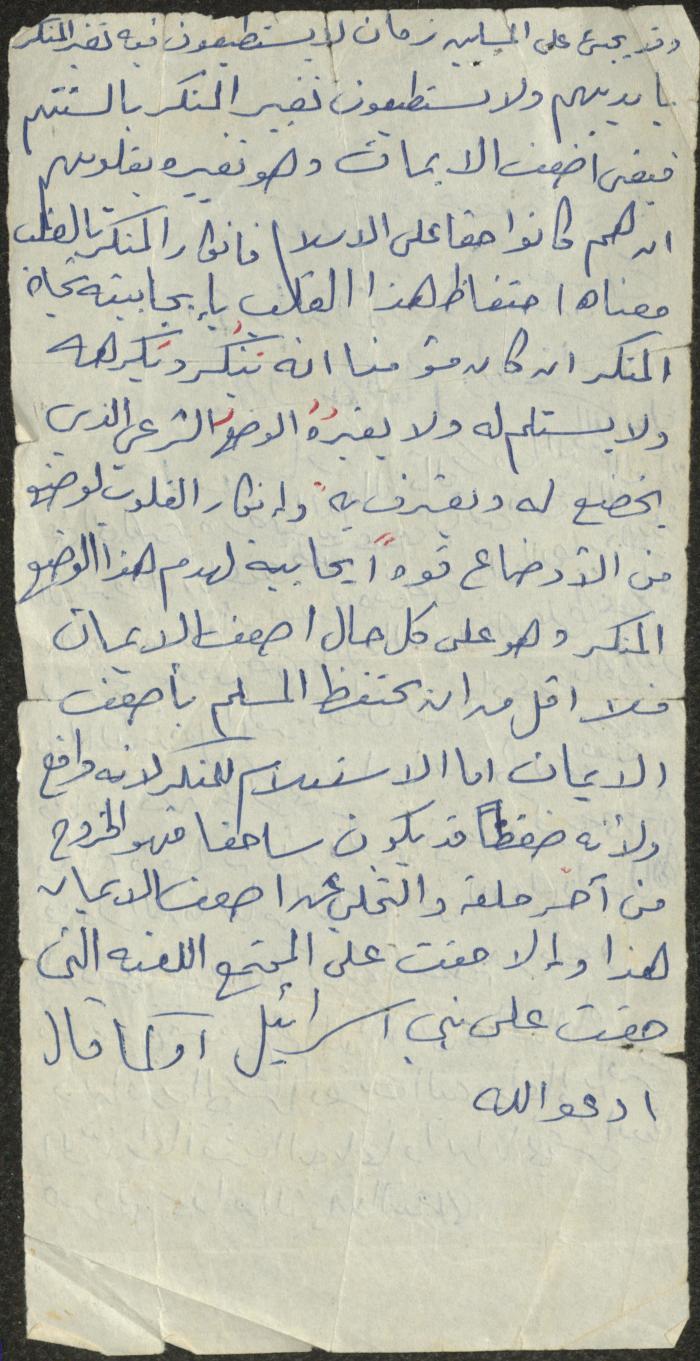 وقد يجئ على المسلمين زمان لا يستطيعون فيه تغير المنكر
بايديهم ولا يستطيعون تغيير المنكر بالسنتهم
فيبقى اضعف الايمان وهو تغييره بقلوبهم
ان هم كانوا حقا على الاسلام فانكار المنكر بالقلب
معناه احتفاظ هذا القلب بإيجابيته تجاه
المنكر ان كان مؤمنا انه ينكره ويكرهه
ولا يستسلم له ولا يعتبره الوضع الشرعي الذي
يخضع له ويعترف به وإنكار القلوب لوضع
من الأوضاع قوة ايجابية لهدم هذا الوضع
المنكر وهو على كل حال اضعف الايمان
فلا اقل من ان يحتفظ المسلم بأضعف
الايمان اما الاستسلام للمنكر لانه واقع
ولأنه ضغطاً قد يكون ساحقا فهو الخروج
من آخر حلقة والتخلي عن اضعف الايمان
هذا وإلا حقت على المجتمع اللعنة التى
حقت على بني اسرائيل او كما قال
ادعو الله